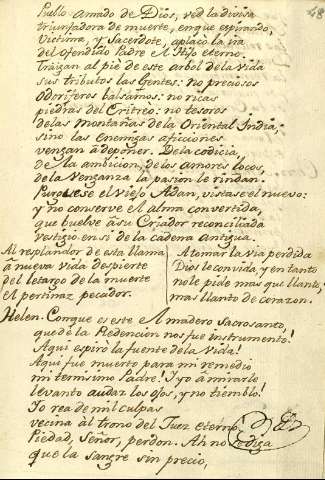 48
Pueblo amado de Dios, ved la divisa
triunfadora de muerte, en que espirando,
Victima, y Sacerdote, aplacó la ira
del ofendido Padre el Hijo eterno
Traigan al piè de este arbol de la vida
sus tributos las Gentes: no preciosos
Odoriferos balsamos: no ricas
piedras del Eritreo: no tesoros
de las Montañas de la Oriental India,
sino las Enemigas aficciones
vengan à deponer. De la codicia,
de la ambicion, de los amores locos,
de la Venganza la pasion le rindan.
Purguese el Viejo Adan, vistase el nuevo:
y no conserve el alma convertida,
que buelve à su Criador reconciliada
vestigio en sì de la cadena antigua.
Al resplandor de esta llama
à nueva vida despierte
del letargo de la muerte
el pertinaz pecador.
A tomar la via perdida
Dios le convida, y en tanto
no le pide mas que llanto,
mas llanto de corazon.
Helen. Conque es este el madero sacrosanto,
que de la Redencion nos fue instrumento!
Aqui espirò la fuente de la Vida!
Aqui fue muerto para mi remedio
mi ternisimo Padre! I yo à mirarle
levanto audaz los ojos, y no tiemblo!
Io rea de mil culpas
vecina al trono del Juez eterno,
Piedad, Señor, perdon. Ah no se diga
que la Sangre sin precio,